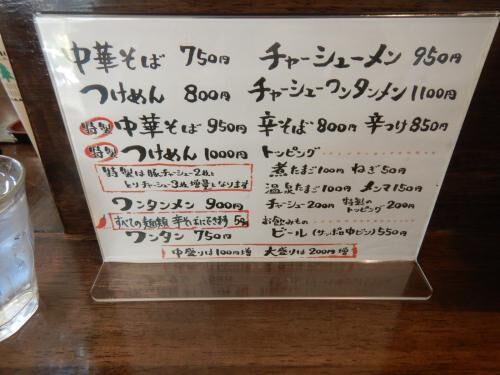 中華そば 750円
つけめん 800円
特製 中華そば 950円
特製 つけめん 1000円
特製は豚チャーシュー2枚と
とりチャーシュー3枚増量となります
ワンタンメン 900円
すべての麺類 辛そばにでき〼 50円
ワンタン 750円
チャーシューメン 950円
チャーシューワンタンメン 1100円
辛そば 800円 辛つけ 850円
トッピング
煮たまご 100円 ねぎ 50円
温泉たまご 100円 メンマ 150円
チャーシュー 200円 特製のトッピング 200円
お飲みもの
ビール (サッポロ中ビン) 550円
中盛りは100円増 大盛りは200円増